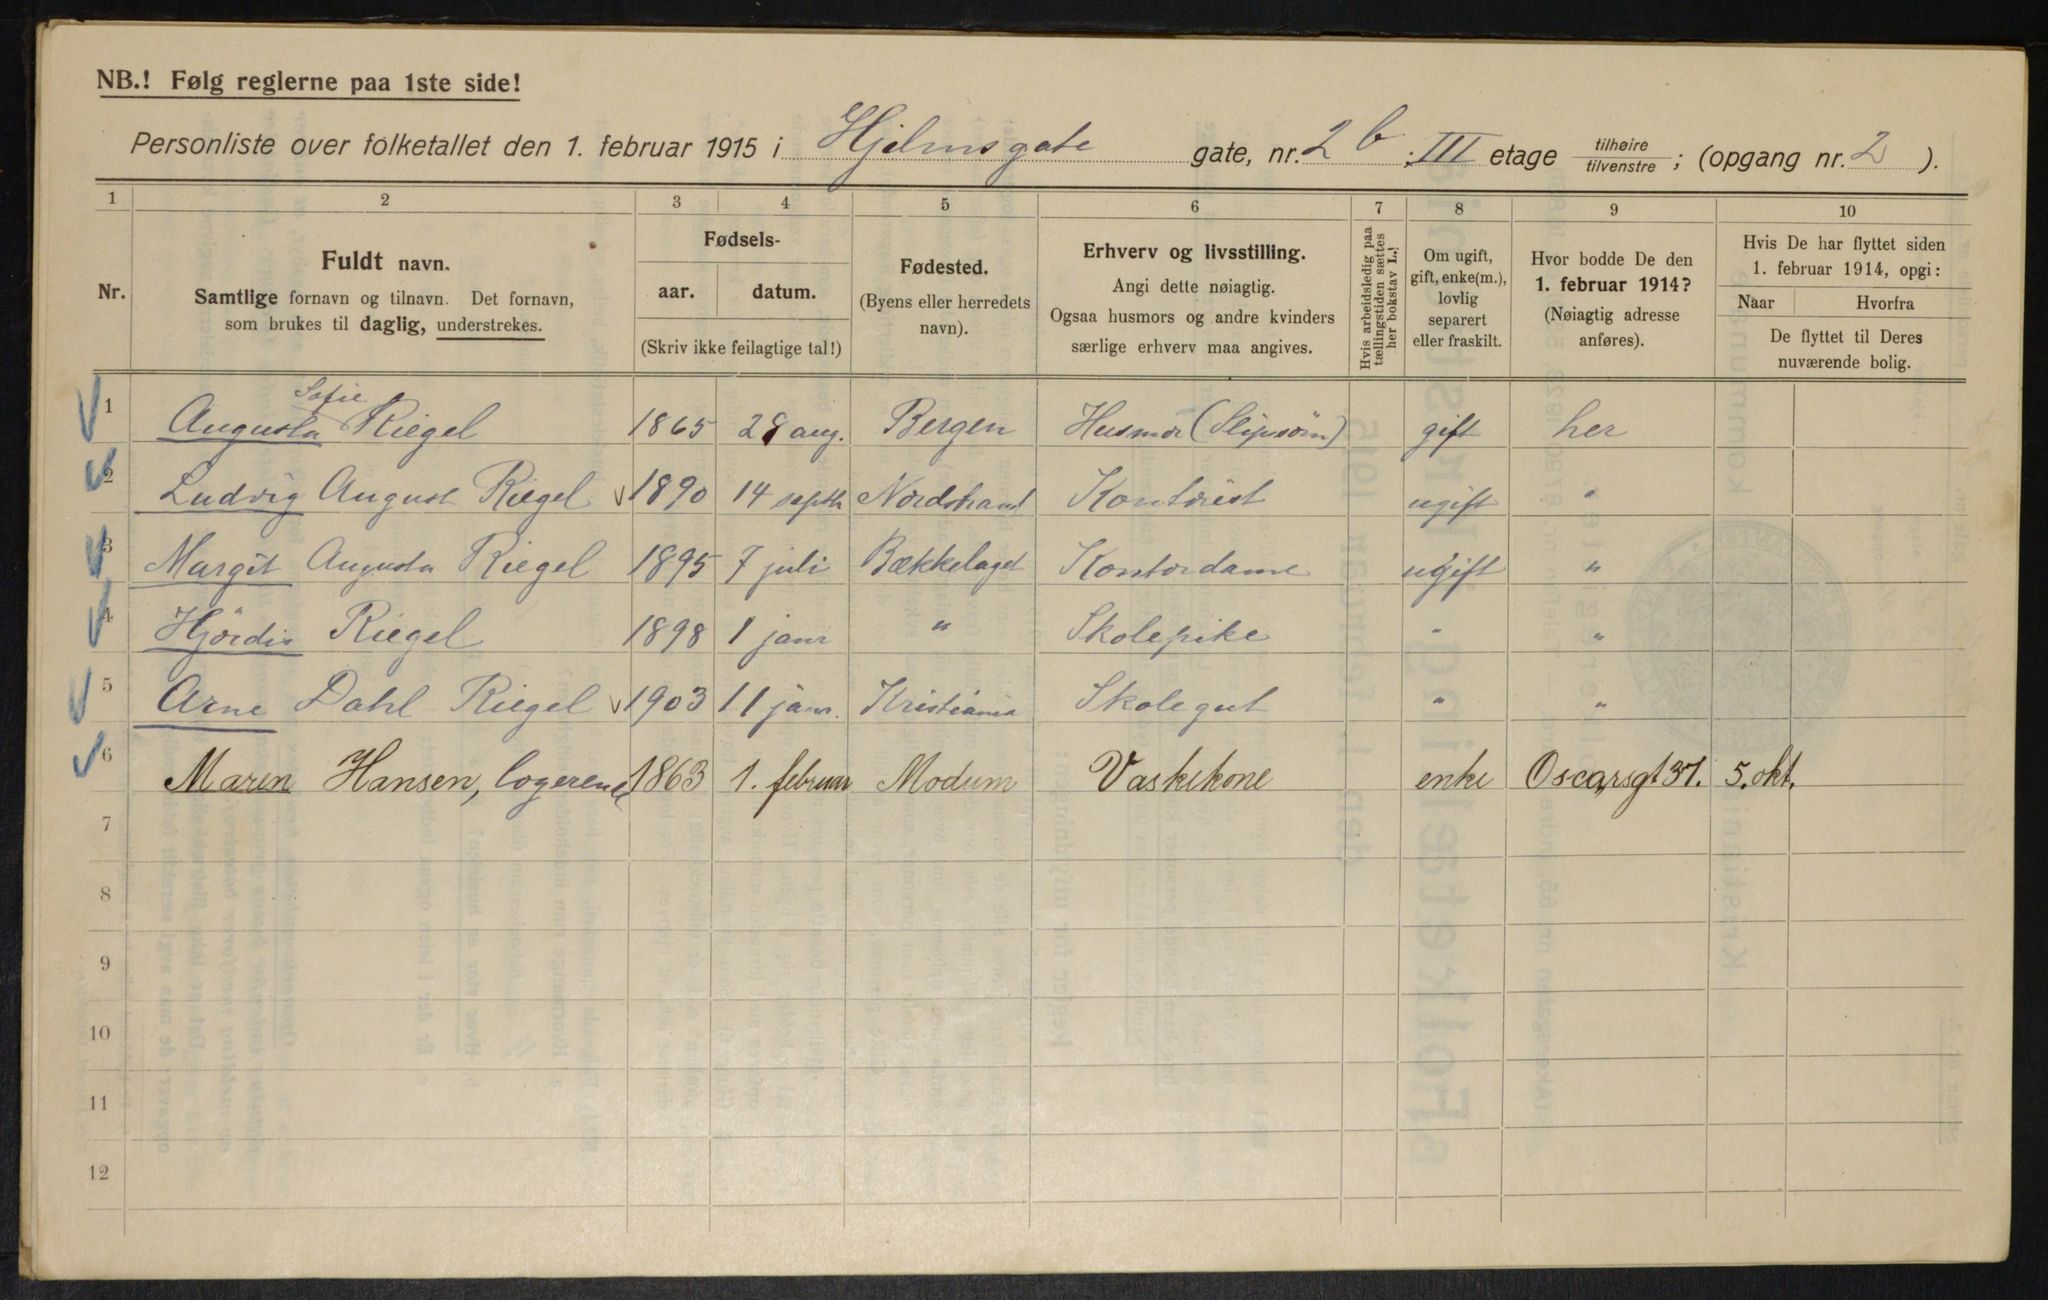 NB.! Følg reglerne paa 1ste side!
Personliste over folketallet den 1. februar 1915 i Hjelmsgate gate, nr. 2 b ; III etage tilhøire tilvenstre ; (opgang nr. 2 ).
1 2 3 4 5 6 7 8 9 10
Nr.
Fuldt navn.
Samtlige fornavn og tilnavn. Det fornavn,
som brukes til daglig, understrekes.
Fødsels-
aar. datum.
(Skriv ikke feilagtige tal!)
Fødested.
(Byens eller herredets
navn).
Erhverv og livsstilling.
Angi dette nøiagtig.
Ogsaa husmors og andre kvinders
særlige erhverv maa angives.
Hvis arbeidsledig paa
tællingstiden sættes
her bokstav L.!
Om ugift,
gift, enke(m.),
lovlig
separert
eller fraskilt.
Hvor bodde De den
1. februar 1914?
(Nøiagtig adresse
anføres).
Hvis De har flyttet siden
1. februar 1914, opgi:
Naar Hvorfra
De flyttet til Deres
nuværende bolig.
Sofie
1 Augusta Riegel 1865 28 aug. Bergen Husmor gift her
2 Ludvig August Riegel 1890 14 septbr Nordstrand Kontorist ugift "
3 Margit Augusta Riegel 1895 7 juli Bækkelaget Kontordame ugift "
4 Hjördis Riegel 1898 1 janr " Skolepike " "
5 Arne Dahl Riegel 1903 11 janr. Kristiania Skolegut " "
6 Maren Hansen, logerende 1863 1. februar Modum Vaskekone enke Oscarsgt 37. 5. okt.
7
8
9
10
11
12